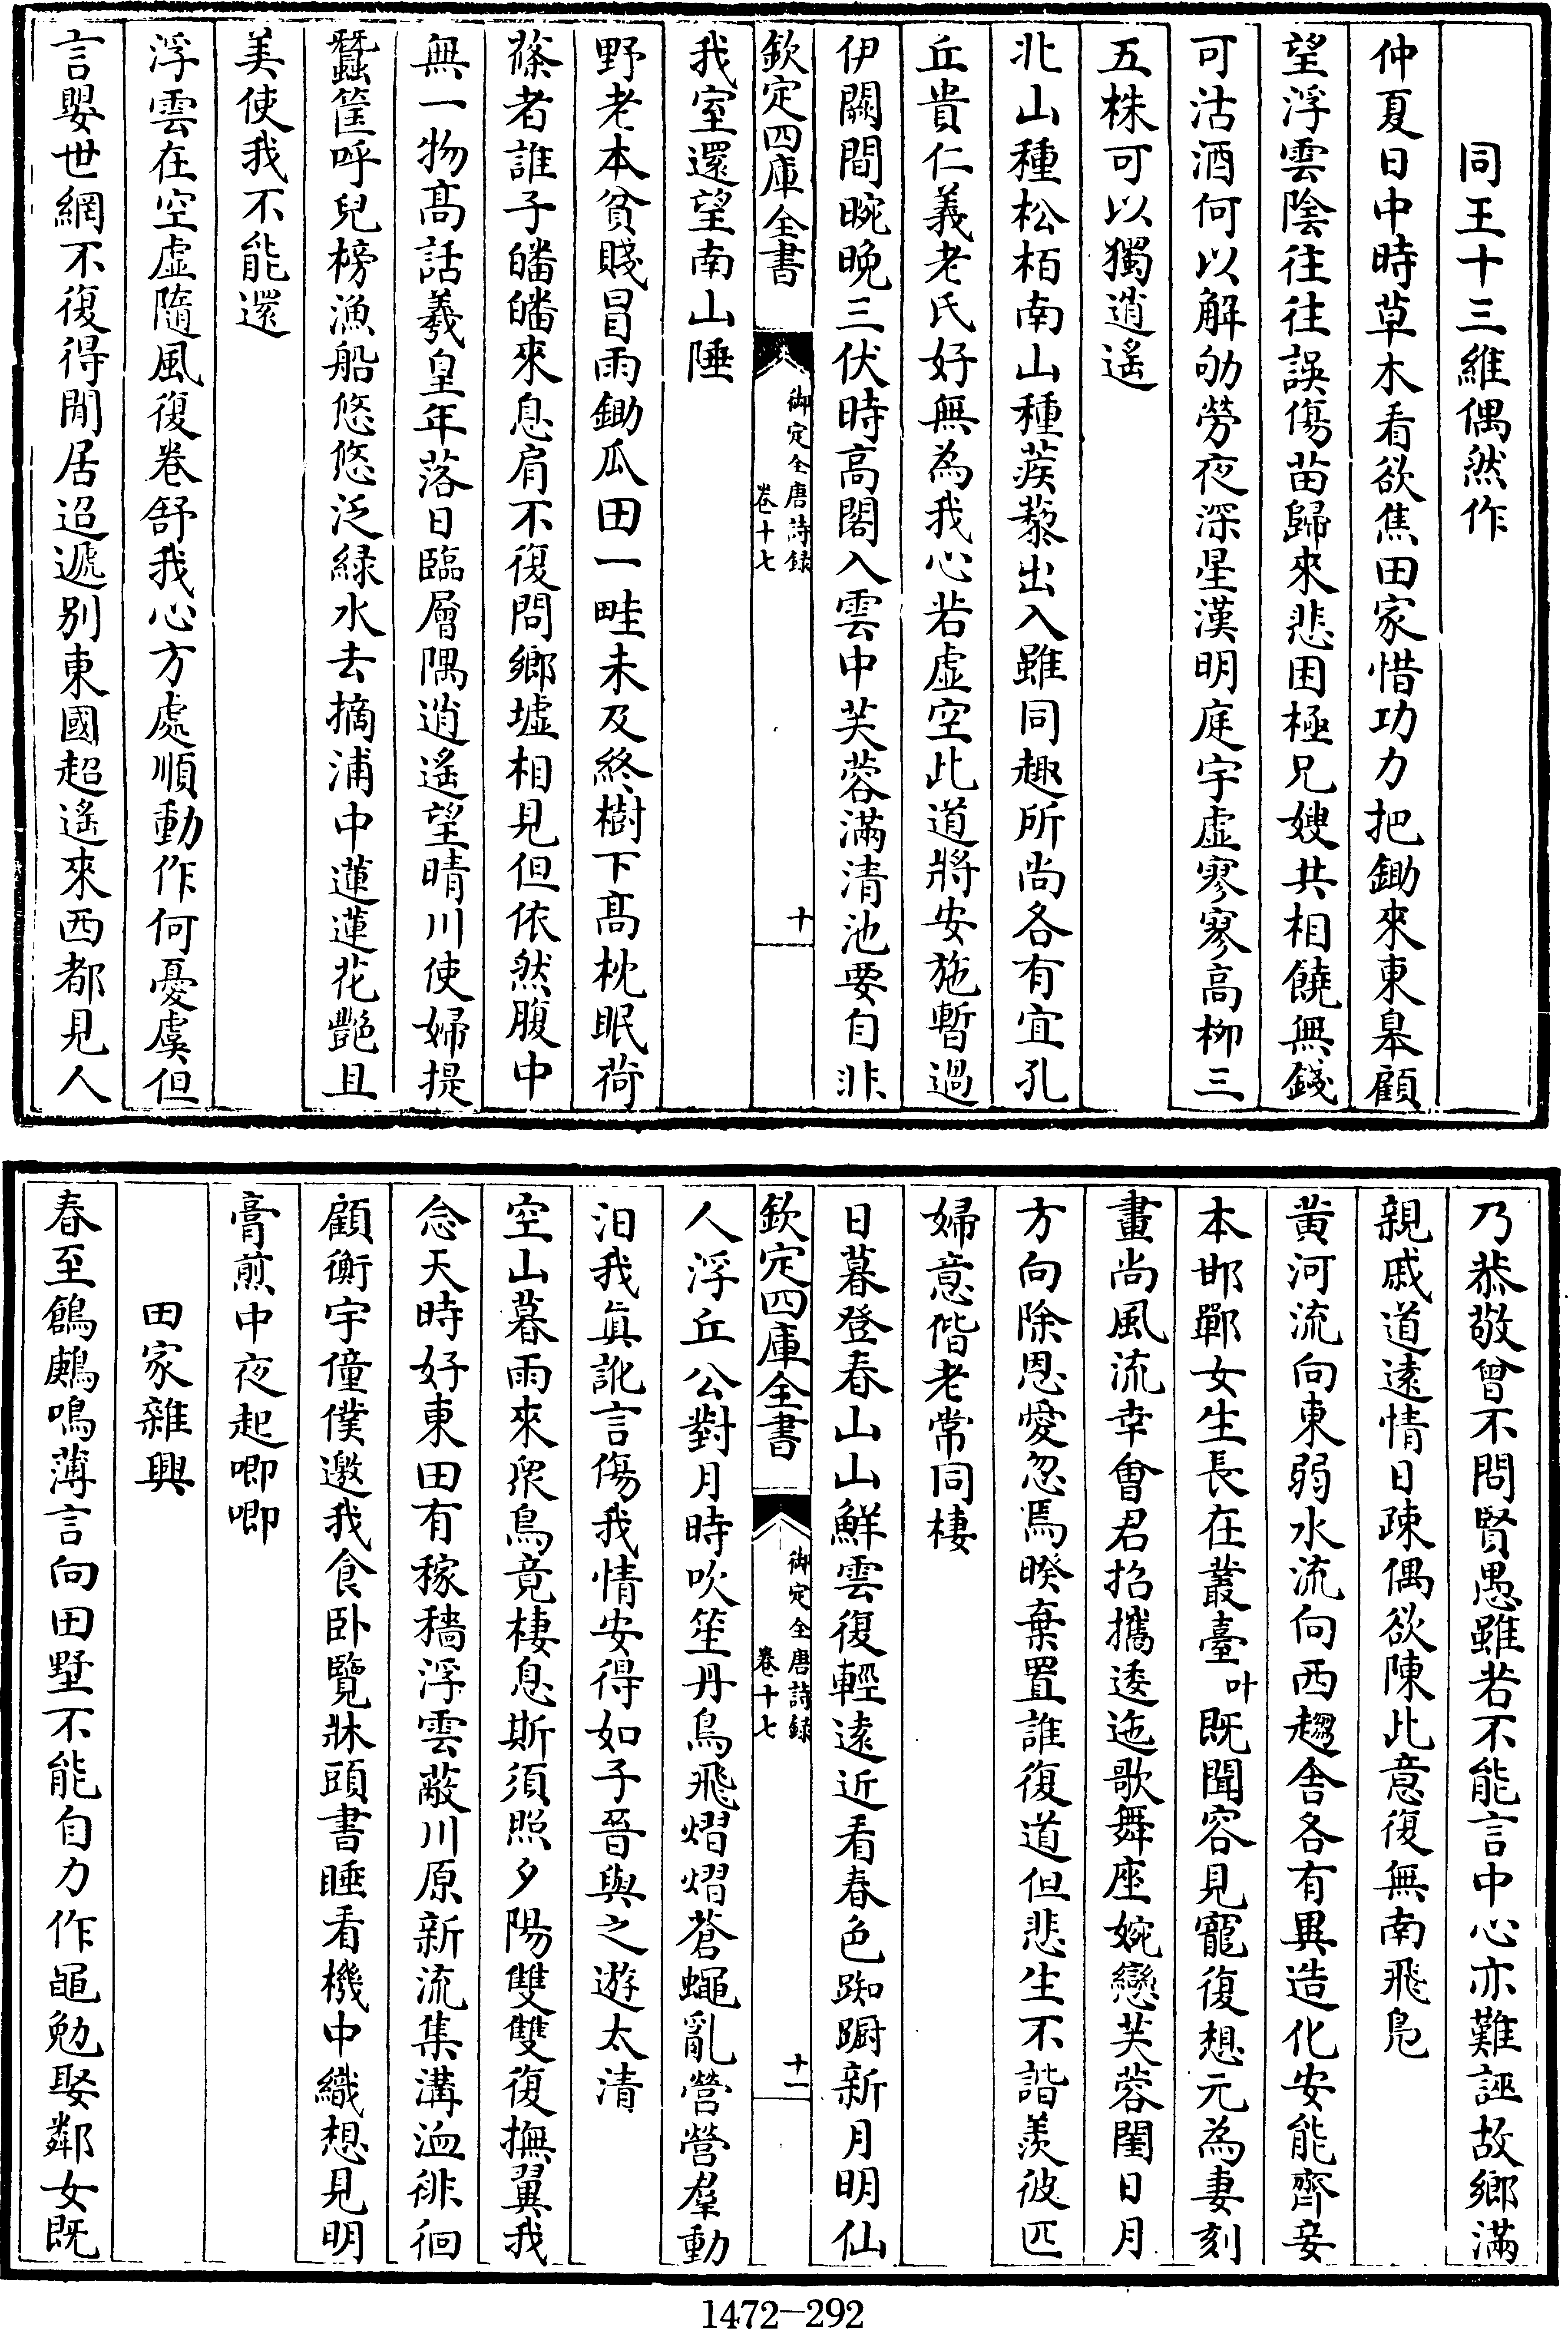 同王十三維偶然作
仲夏日中時草木看欲焦田家惜功力把鋤來東臯顧
望浮雲陰往往誤傷苗歸來悲困極兄嫂共相饒無錢
可沽酒何以解劬勞夜深星漢明庭宇虛寥寥高柳三
五株可以獨逍遙
北山種松栢南山種蒺藜出入雖同趣所尚各有宜孔
丘貴仁義老氏好無為我心若虛空此道將安施暫過
伊闕間晼晚三伏時高閣入雲中芙蓉滿清池要自非
欽定四庫全書
御定全唐詩録
卷十七
十
我室還望南山陲
野老本貧賤冒雨鋤瓜田一畦未及終樹下髙枕眠荷
蓧者誰子皤皤來息肩不復問鄉墟相見但依然腹中
無一物髙話羲皇年落日臨層隅逍遙望晴川使婦提
蠶筐呼兒榜漁船悠悠泛緑水去摘浦中蓮蓮花艷且
美使我不能還
浮雲在空虛隨風復卷舒我心方處順動作何憂虞但
言嬰世網不復得閒居迢遞别東國超遙來西都見人
乃恭敬曾不問賢愚雖若不能言中心亦難誣故鄉滿
親戚道遠情日疎偶欲陳此意復無南飛鳬
黃河流向東弱水流向西趨舍各有異造化安能齊妾
本邯鄲女生長在叢臺叶既聞容見寵復想元為妻刻
畫尚風流幸會君招攜逶迤歌舞座婉孌芙蓉閨日月
方向除恩愛忽焉暌棄置誰復道但悲生不諧羨彼匹
婦意偕老常同棲
日暮登春山山鮮雲復輕遠近看春色踟蹰新月明仙
欽定四庫全書
御定全唐詩録
卷十七
十一
人浮丘公對月時吹笙丹鳥飛熠熠蒼蠅亂營營羣動
汨我真訛言傷我情安得如子晉與之遊太清
空山暮雨來衆鳥竟棲息斯須照夕陽雙雙復撫翼我
念天時好東田有稼穡浮雲蔽川原新流集溝洫徘徊
顧衡宇僮僕邀我食卧覽牀頭書睡看機中織想見明
膏煎中夜起唧唧
田家雜興
春至鶬鶊鳴薄言向田墅不能自力作黽勉娶鄰女既
1472-292